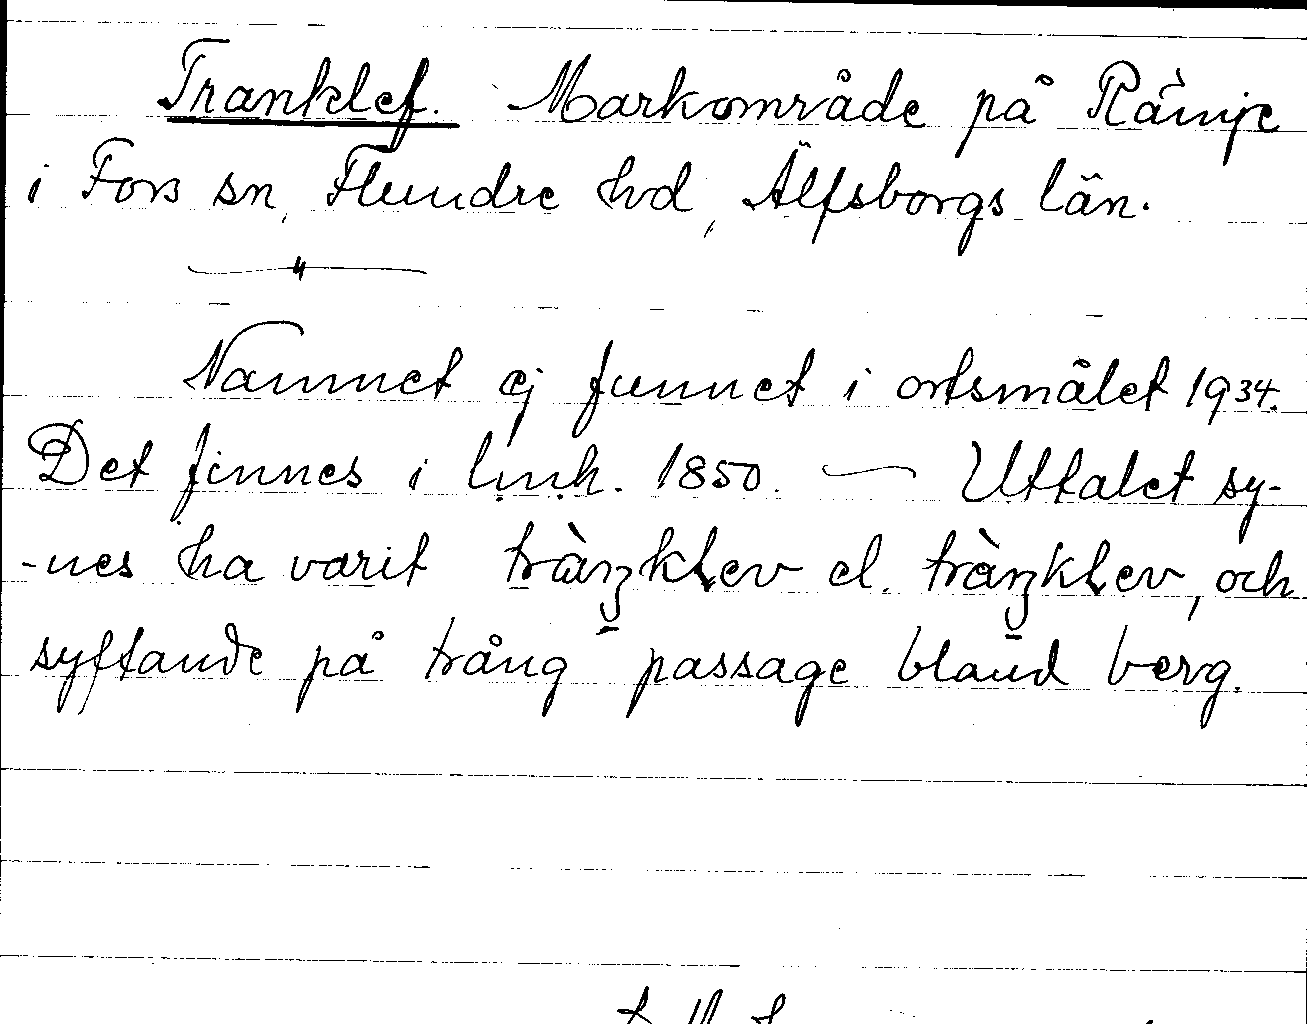 Tranklef. Markområde på Rämje
i Fors sn, Flundre hd, Älfsborgs län.
— " —
Namnet ej funnet i ortsmålet 1934.
Det finnes i lmh. 1850. — Uttalet sy-
-nes ha varit el. , och
syftande på trång passage bland berg.